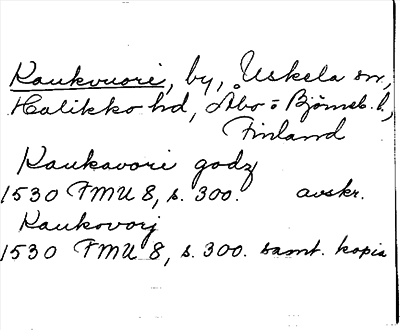 Kaukvuori, by, Uskela sn,
Halikko hd, Åbo o Björneb. l,
Finland
Kaukavori godz
1530 FMU 8, s. 300. avskr.
Kaukovorj
1530 FMU 8, s. 300. samt. kopia